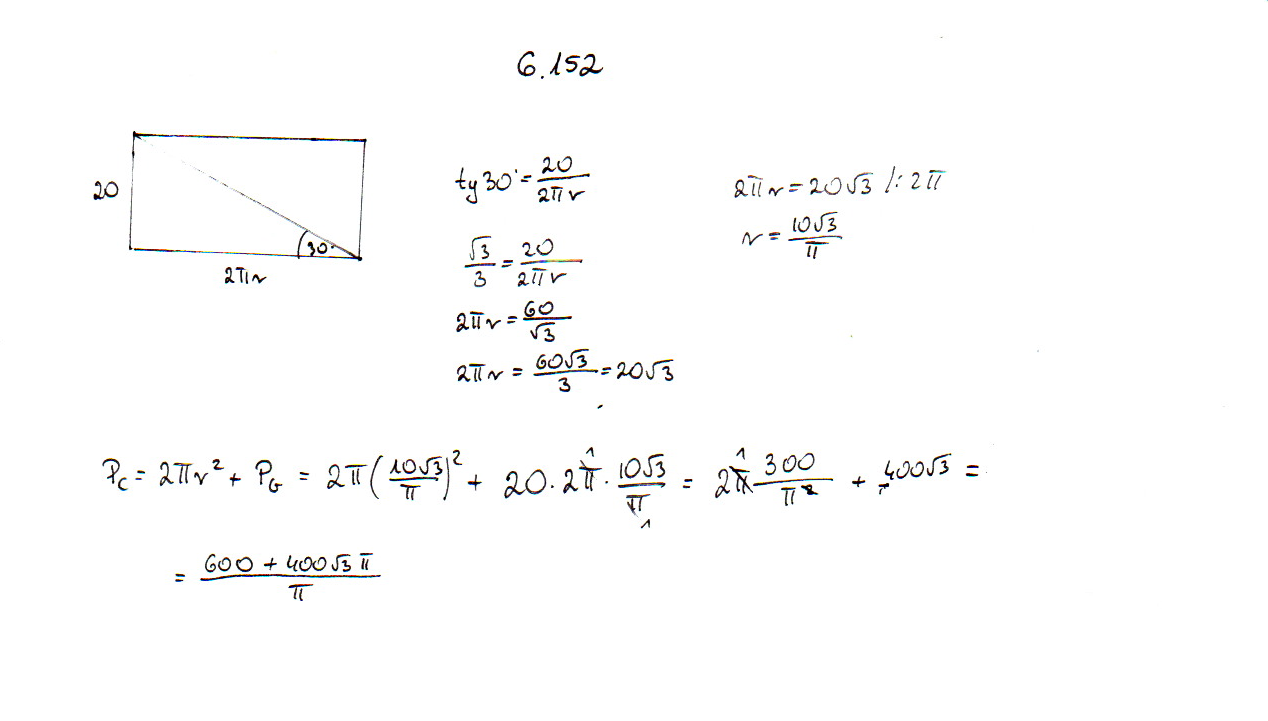 6.152
20
30°
2πr
tg30° = 20/(2πr)
√3/3 = 20/(2πr)
2πr = 60/√3
2πr = 60√3/3 = 20√3
2πr = 20√3 /: 2π
r = 10√3/π
Pc = 2πr² + PG = 2π(10√3/π)² + 20·2π·10√3/π = 2π 300/π² + 400√3 =
= (600 + 400√3 π)/π